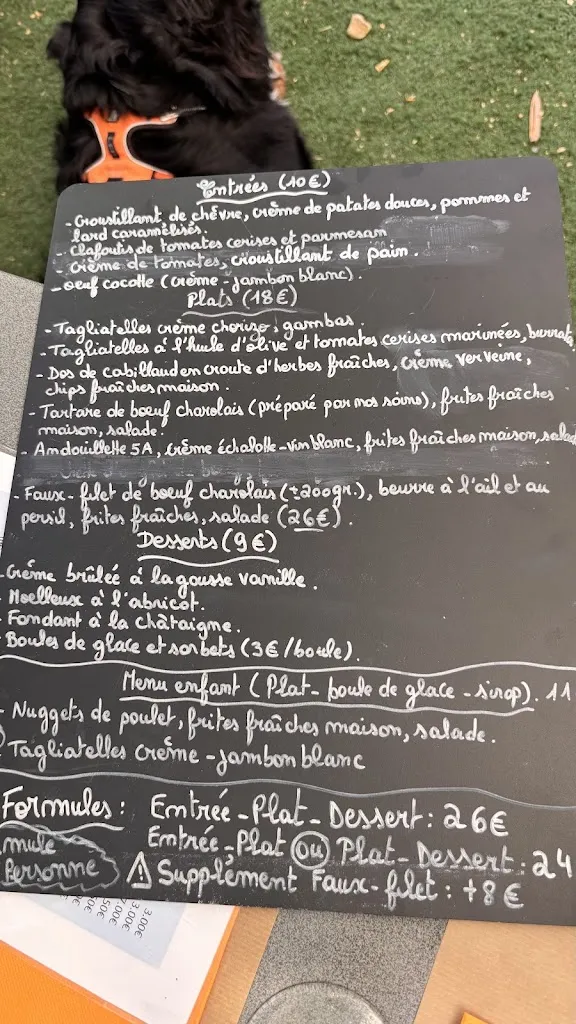 Entrées (10€)
- Croustillant de chèvre, crème de patates douces, pommes et
lard caramélisés.
- Clafoutis de tomates cerises et parmesan
- Crème de tomates, croustillant de pain.
- oeuf cocotte (crème - jambon blanc).
Plats (18€)
- Tagliatelles crème chorizo, gambas.
- Tagliatelles à l'huile d'olive et tomates cerises marinées, burrata
- Dos de cabillaud en croute d'herbes fraîches, crème verveine,
chips fraîches maison.
- Tartare de boeuf charolais (préparé par nos soins), frites fraîches
maison, salade.
- Andouillette 5A, crème échalotte - vin blanc, frites fraîches maison, salad
- Faux-filet de boeuf charolais (±200gr.), beurre à l'ail et au
persil, frites fraîches, salade (26€).
Desserts (9€)
- Crème brûlée à la gousse vanille.
- Moelleux à l'abricot.
- Fondant à la châtaigne.
- Boules de glace et sorbets (3€/boule).
Menu enfant (Plat - boule de glace - sirop). 11
- Nuggets de poulet, frites fraîches maison, salade.
Tagliatelles crème - jambon blanc
Formules : Entrée - Plat - Dessert : 26€
mule Entrée - Plat ou Plat - Dessert : 24
Personne ⚠ Supplément Faux-filet : +8€
3.00€
3.00€